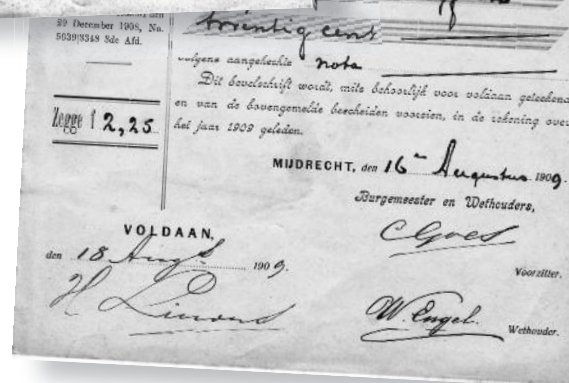 29 December 1908, No.
5039|3348 3de Afd.
twintig cent
volgens aangehechte nota
Dit bevelschrift wordt, mits behoorlijk voor voldaan geteekend
en van de bovengemelde bescheiden voorzien, in de rekening over
het jaar 1909 geleden.
Zegge f 2,25
MIJDRECHT, den 16en Augustus 1909.
Burgemeester en Wethouders,
Voorzitter.
W. Engel.
Wethouder.
VOLDAAN,
den 18 Aug's 1909.